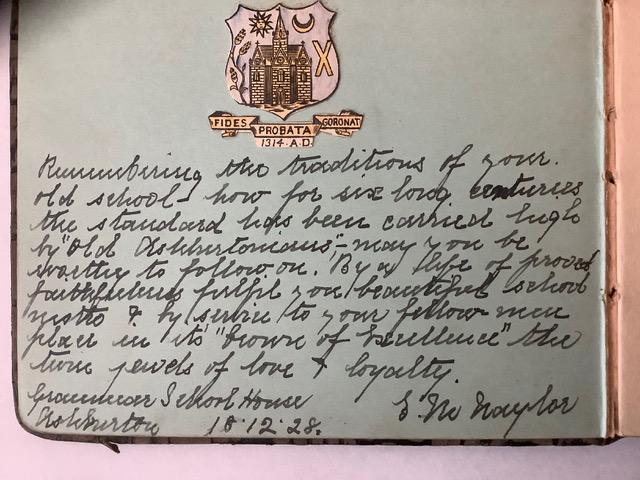 FIDES PROBATA CORONAT
1314. A.D.
Remembering the traditions of your
old school - how for six long centuries
the standard has been carried high
by "Old Ashburtonians" - may you be
worthy to follow on. By a life of proved
faithfulness fulfil your beautiful school
motto & by service to your fellow-men
place in its "Crown of Excellence" the
twin jewels of love & loyalty.
Grammar School House
Ashburton 18.12.28.
E. M. Naylor